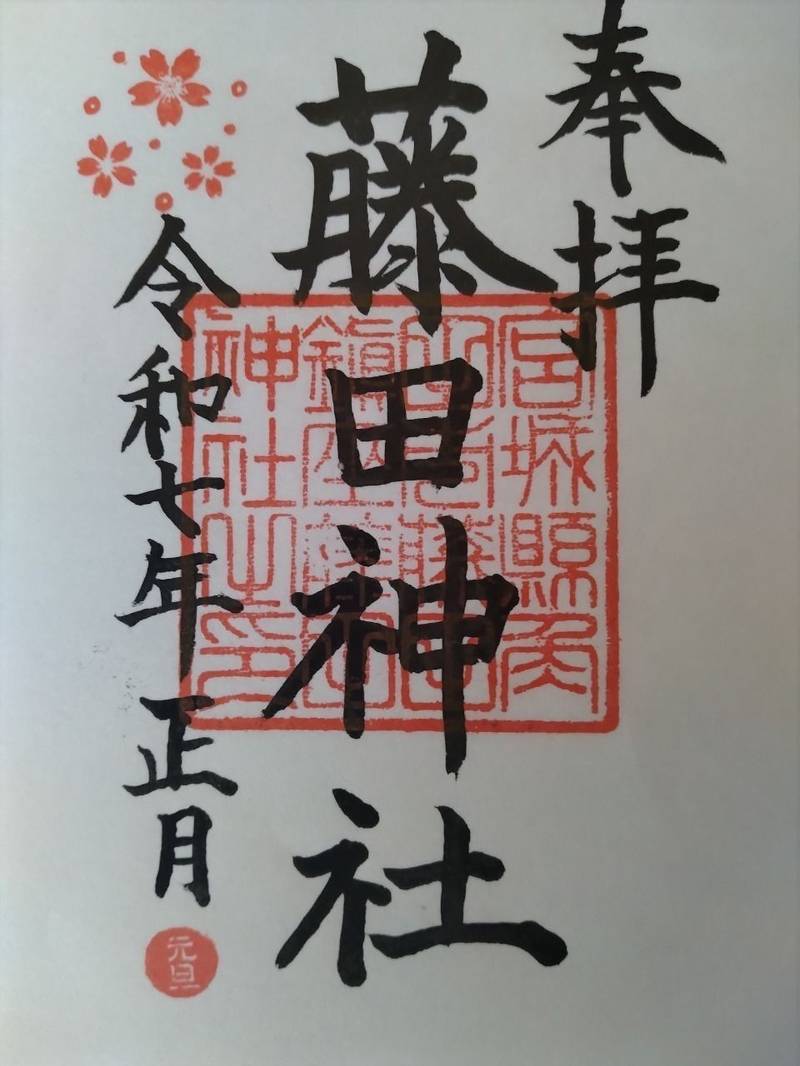 奉拝
藤田神社
宮城縣角
田市藤田
鎮座藤田
神社之印
令和七年 正月
元旦